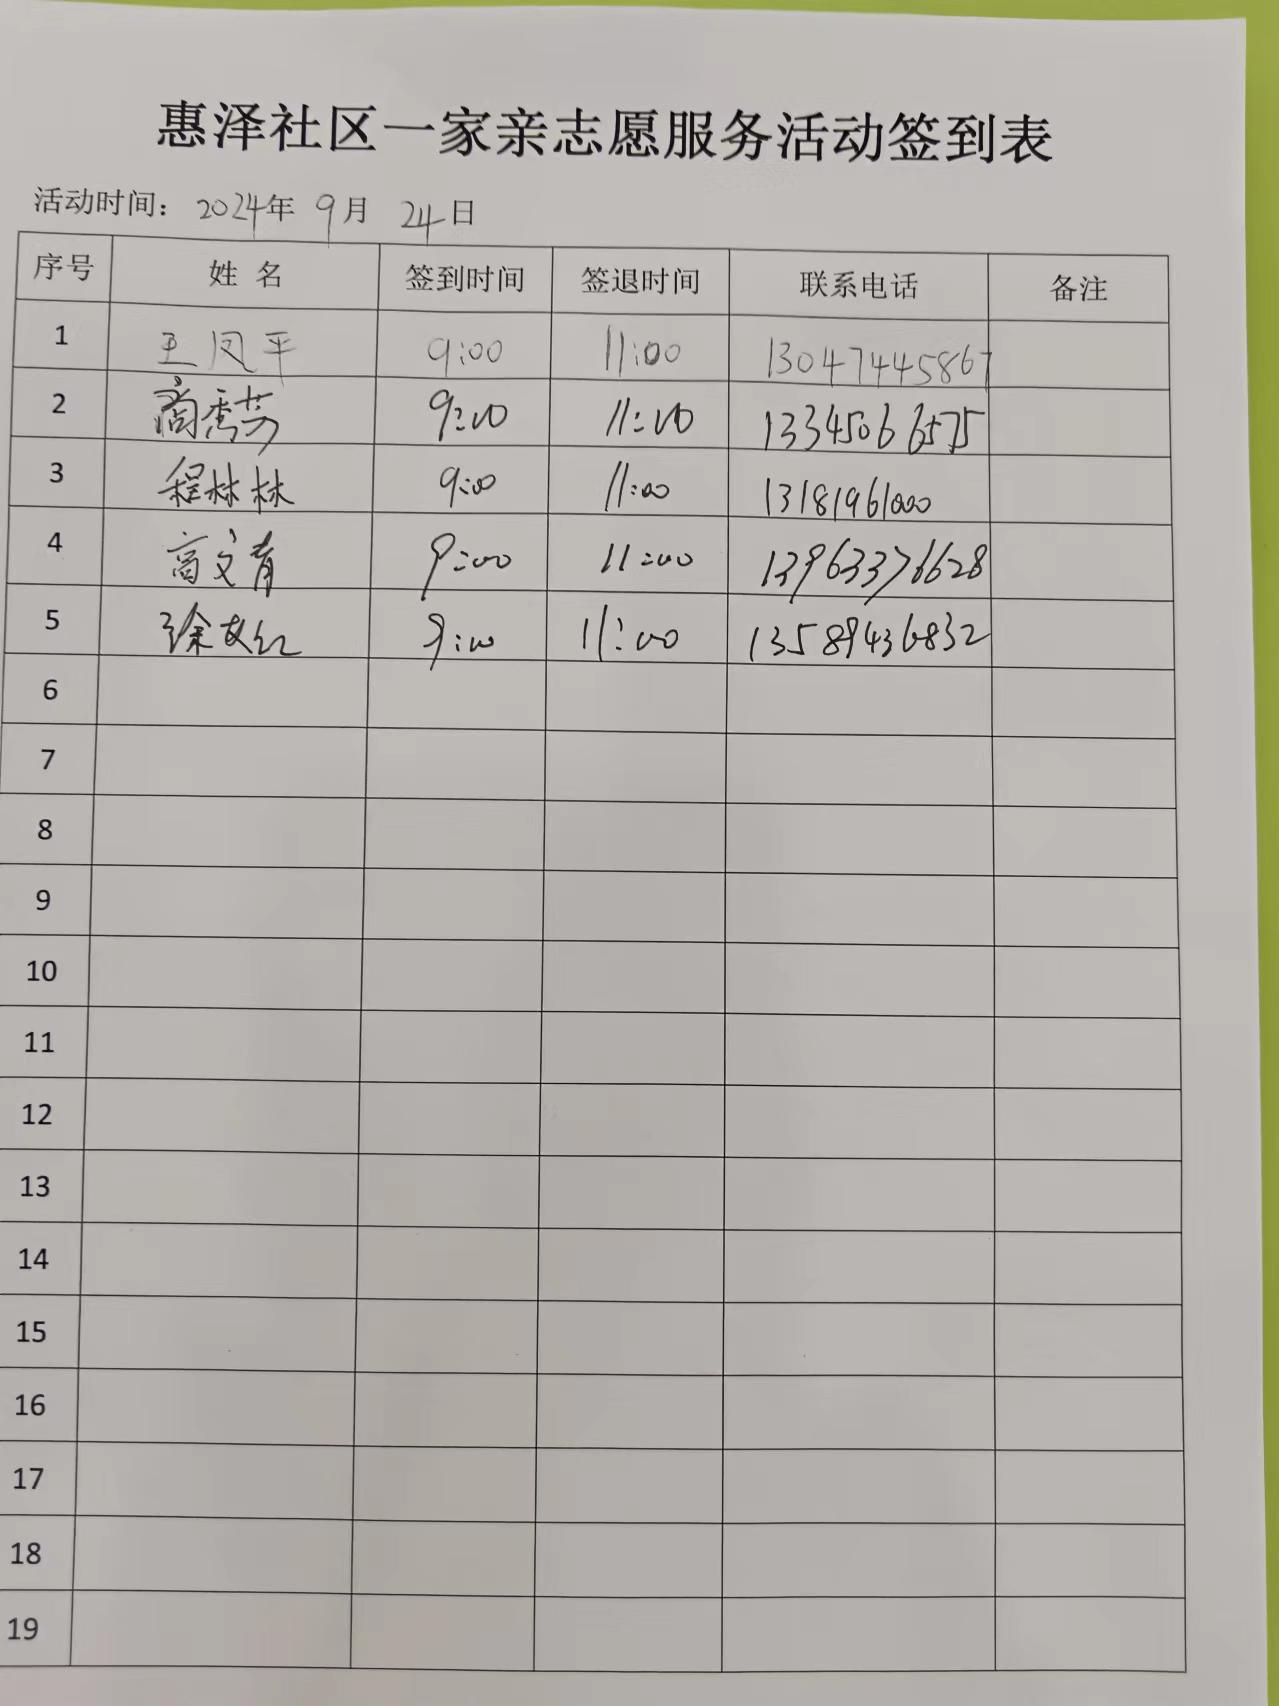 惠泽社区一家亲志愿服务活动签到表
活动时间： 2024年 9月 24日
序号 姓 名 签到时间 签退时间 联系电话 备注
1 王凤平 9:00 11:00 13047445867
2 商秀芳 9:00 11:00 13345066575
3 程林林 9:00 11:00 13181961000
4 高文青 9:00 11:00 13963376628
5 徐文红 9:00 11:00 13589436832
6
7
8
9
10
11
12
13
14
15
16
17
18
19